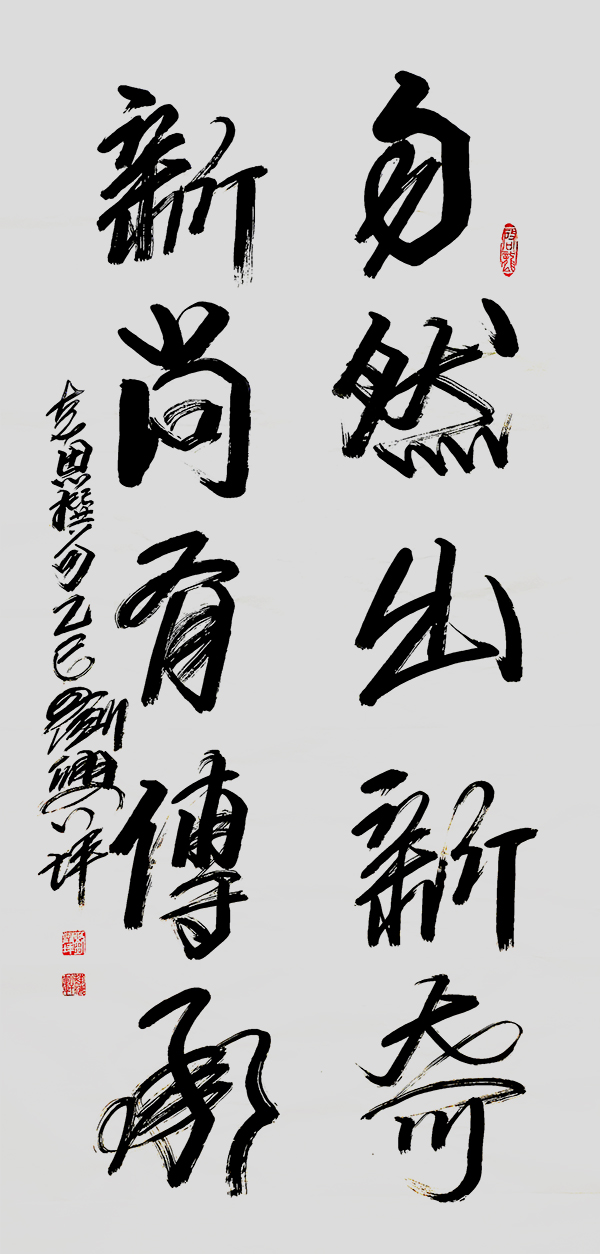 自然出新奇
新尚有傳承
思撰句乙巳劉興坪